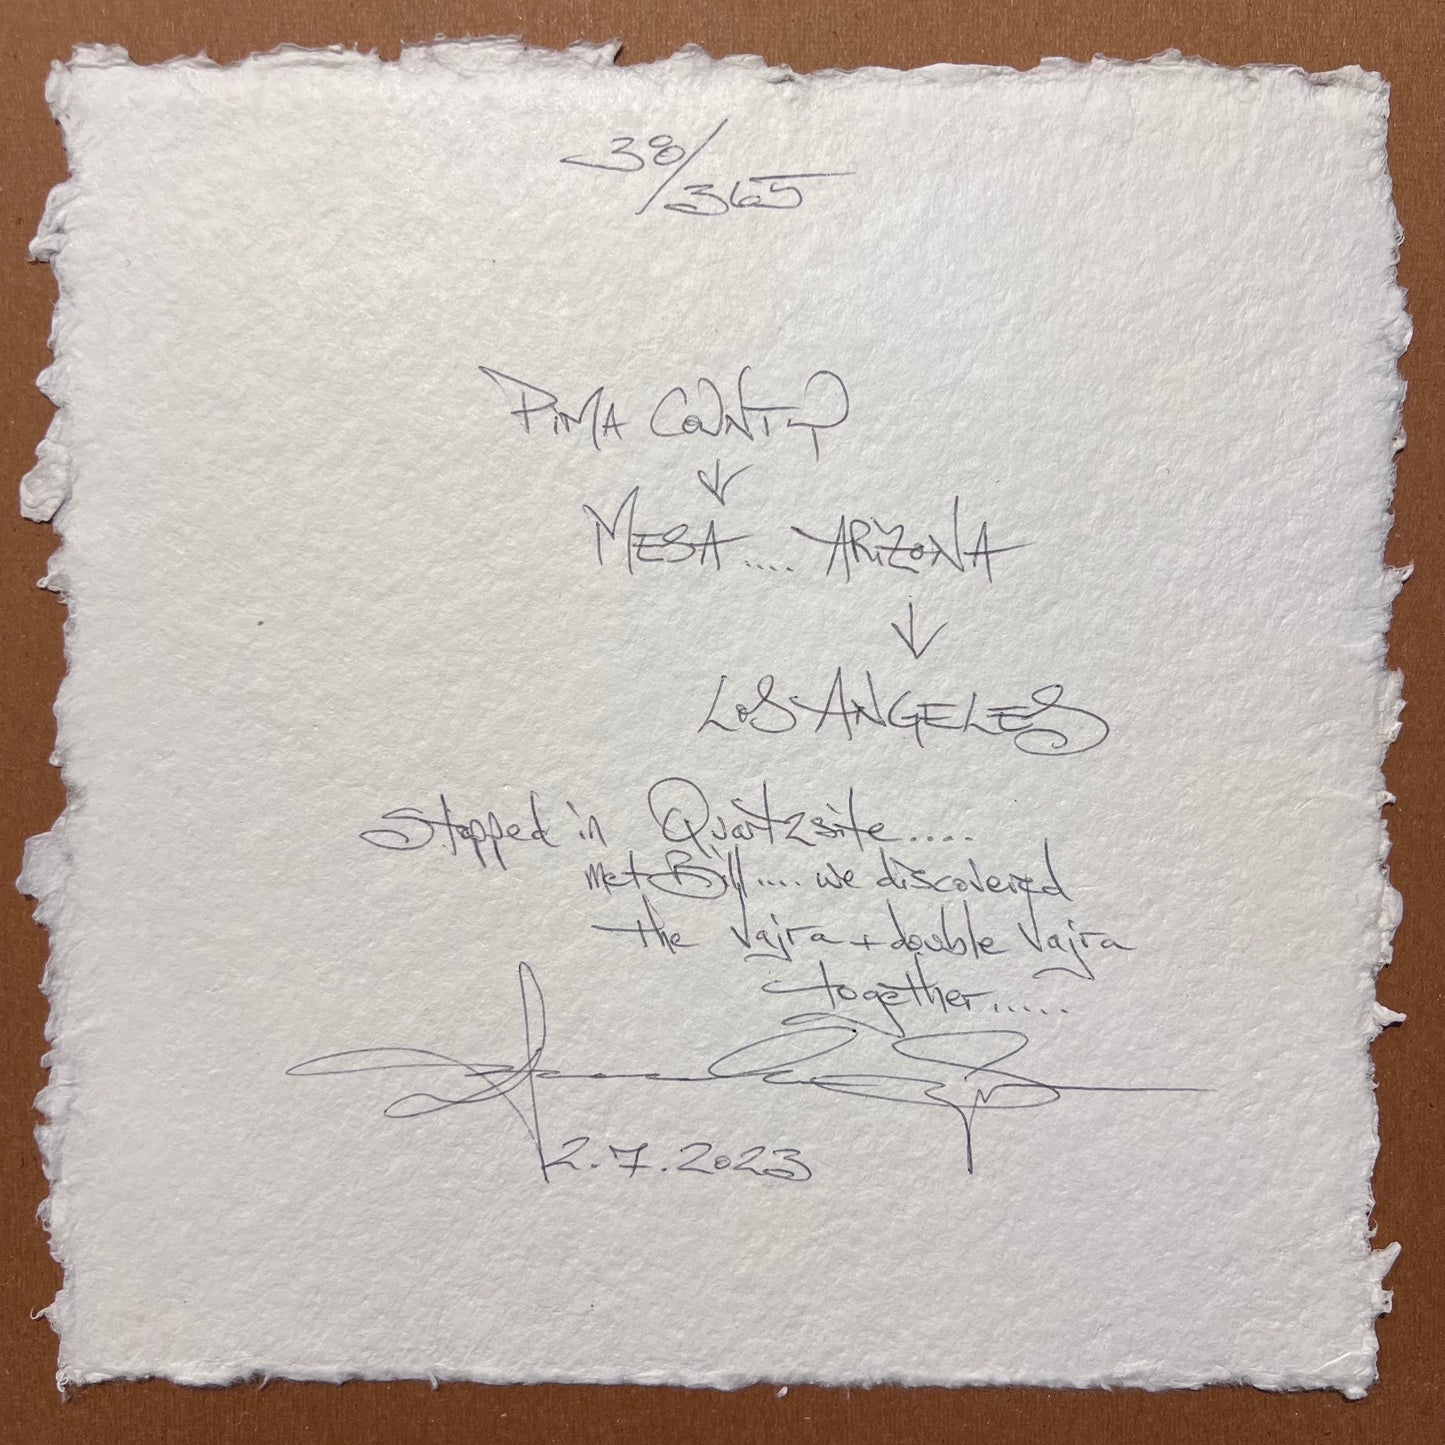 38/365
PIMA COUNTY
↓
MESA.... ARIZONA
↓
LOS ANGELES
Stopped in Quartzsite.....
met Bill.... we discovered
the Vajra + double Vajra
together.....
2.7.2023